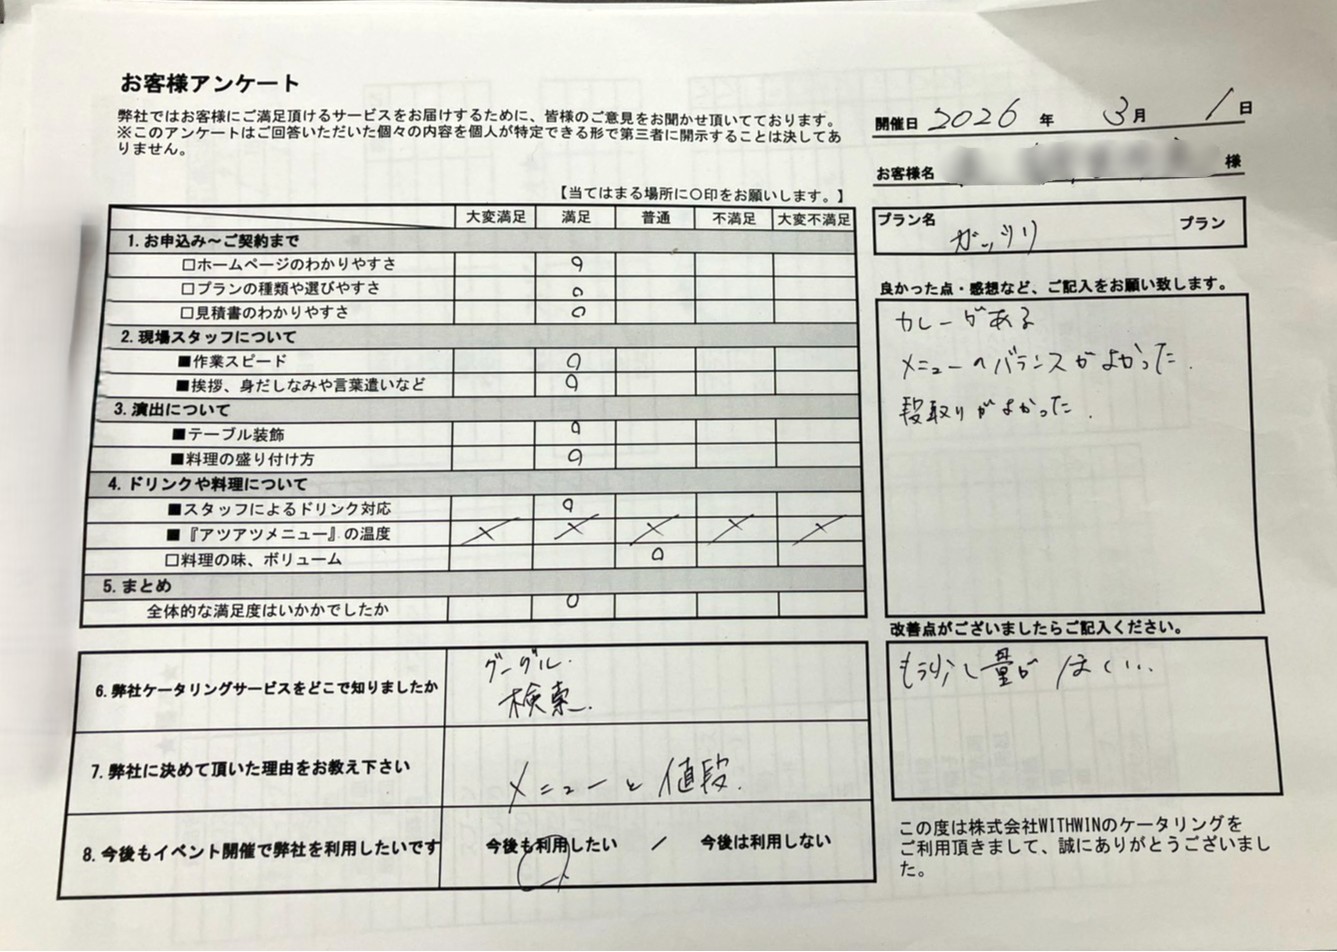 お客様アンケート
弊社ではお客様にご満足頂けるサービスをお届けするために、皆様のご意見をお聞かせ頂いております。
※このアンケートはご回答いただいた個々の内容を個人が特定できる形で第三者に開示することは決してあ
りません。
開催日 2026 年 3月 1日
お客様名 様
プラン名 ガッツリ プラン
【当てはまる場所に〇印をお願いします。】
大変満足 満足 普通 不満足 大変不満足
1. お申込み～ご契約まで
□ホームページのわかりやすさ ○
□プランの種類や選びやすさ ○
□見積書のわかりやすさ ○
2. 現場スタッフについて
■作業スピード ○
■挨拶、身だしなみや言葉遣いなど ○
3. 演出について
■テーブル装飾 ○
■料理の盛り付け方 ○
4. ドリンクや料理について
■スタッフによるドリンク対応 ○
■『アツアツメニュー』の温度 × × × × ×
□料理の味、ボリューム ○
5. まとめ
全体的な満足度はいかかでしたか ○
6. 弊社ケータリングサービスをどこで知りましたか
グーグル.
検索.
7. 弊社に決めて頂いた理由をお教え下さい
メニューと値段.
8. 今後もイベント開催で弊社を利用したいです
今後も利用したい ／ 今後は利用しない
良かった点・感想など、ご記入をお願い致します。
カレーがある
メニューのバランスがよかった.
段取りがよかった.
改善点がございましたらご記入ください。
もう少し量がほしい..
この度は株式会社WITHWINのケータリングを
ご利用頂きまして、誠にありがとうございまし
た。